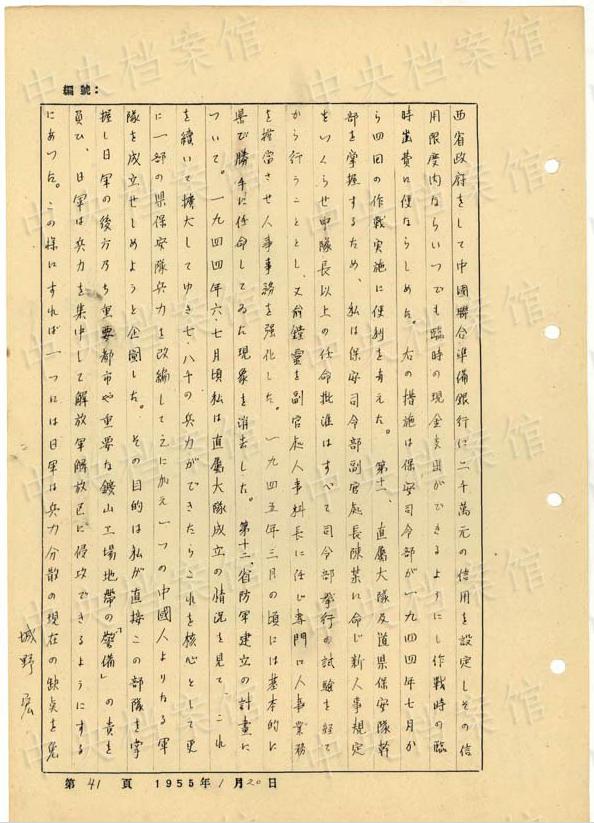 編號：
西省政府をして中國聯合準備銀行に二千萬元の信用を設定しその信
用限度内ならいつでも臨時の現金支出ができるようにし作戰時の臨
時出費に便ならしめた。右の措施は保安司令部が一九四四年七月か
ら四回の作戰実施に便利を与えた。第十一、直屬大隊及道県保安隊幹
部を掌握するため、私は保安司令部副官処長陳某に命じ新人事規定
をつくらせ中隊長以上の任命批准はすべて司令部挙行の試験を経て
から行うこととし、又俞鐘靈を副官処人事科長に任じ專門に人事業務
を擔當させ人事事務を強化した。一九四五年三月の頃には基本的に
県で勝手に任命してゐた現象を消去した。第十二、省防軍建立の計畫に
ついて。一九四四年六、七月頃私は直屬大隊成立の情況を見て、これ
を續いて擴大してゆき七、八千の兵力ができたらこれを核心として更
に一部の県保安隊兵力を改編して之に加え一つの中國人よりなる軍
隊を成立せしめようと企圖した。その目的は私が直接この部隊を掌
握し日軍の後方乃ち重要都市や重要な鑛山工場地帶の「警備」の責を
負ひ、日軍は兵力を集中して解放軍解放区に侵攻できるようにする
にあつた。この様にすれば一つには日軍は兵力分散の現在の缺点を免
城野宏
第 41 頁 1955年 1月20日
中央档案馆